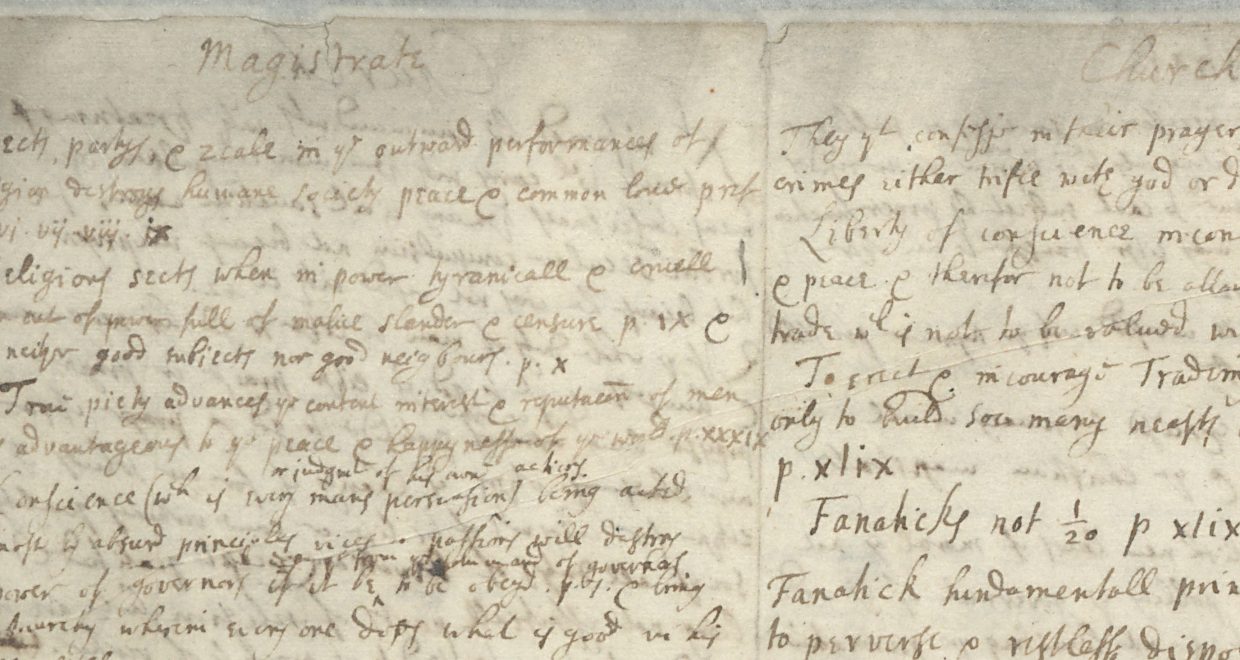 Magistrate
sects, partys, & zeale in ye outward performances of
gion destroys humane society peace & common love pref
vi vij viij ix
eligions sects when in power tyranicall & cruell
out of power full of malice slander & censure p. ix &
neithr good subjects nor good neighbours. p. x
True piety advances ye content interest & reputacon of men
advantageous to ye peace & happynesse of ye world p. xxxix
or judgmt of his own actions.
onscience (wch is every mans perswasion) being acted
most by absurd principles vices & passions will destroy
of governors.
power of governors if it be to be obeyd. p. &  bring
Anarchy wherein every one doth what is good in his
Church
They yt confesse in their prayer
crimes either trifle with god or d
Liberty of conscience incon
& peace & therefor not to be allow
trade wch is not to be valued wi
To erect & incourage Tradein
only to build soe many neasts
p. xlix
Fanaticks not 1/20 p xlix
Fanatick fundamentall prin
to perverse & restlesse dispo